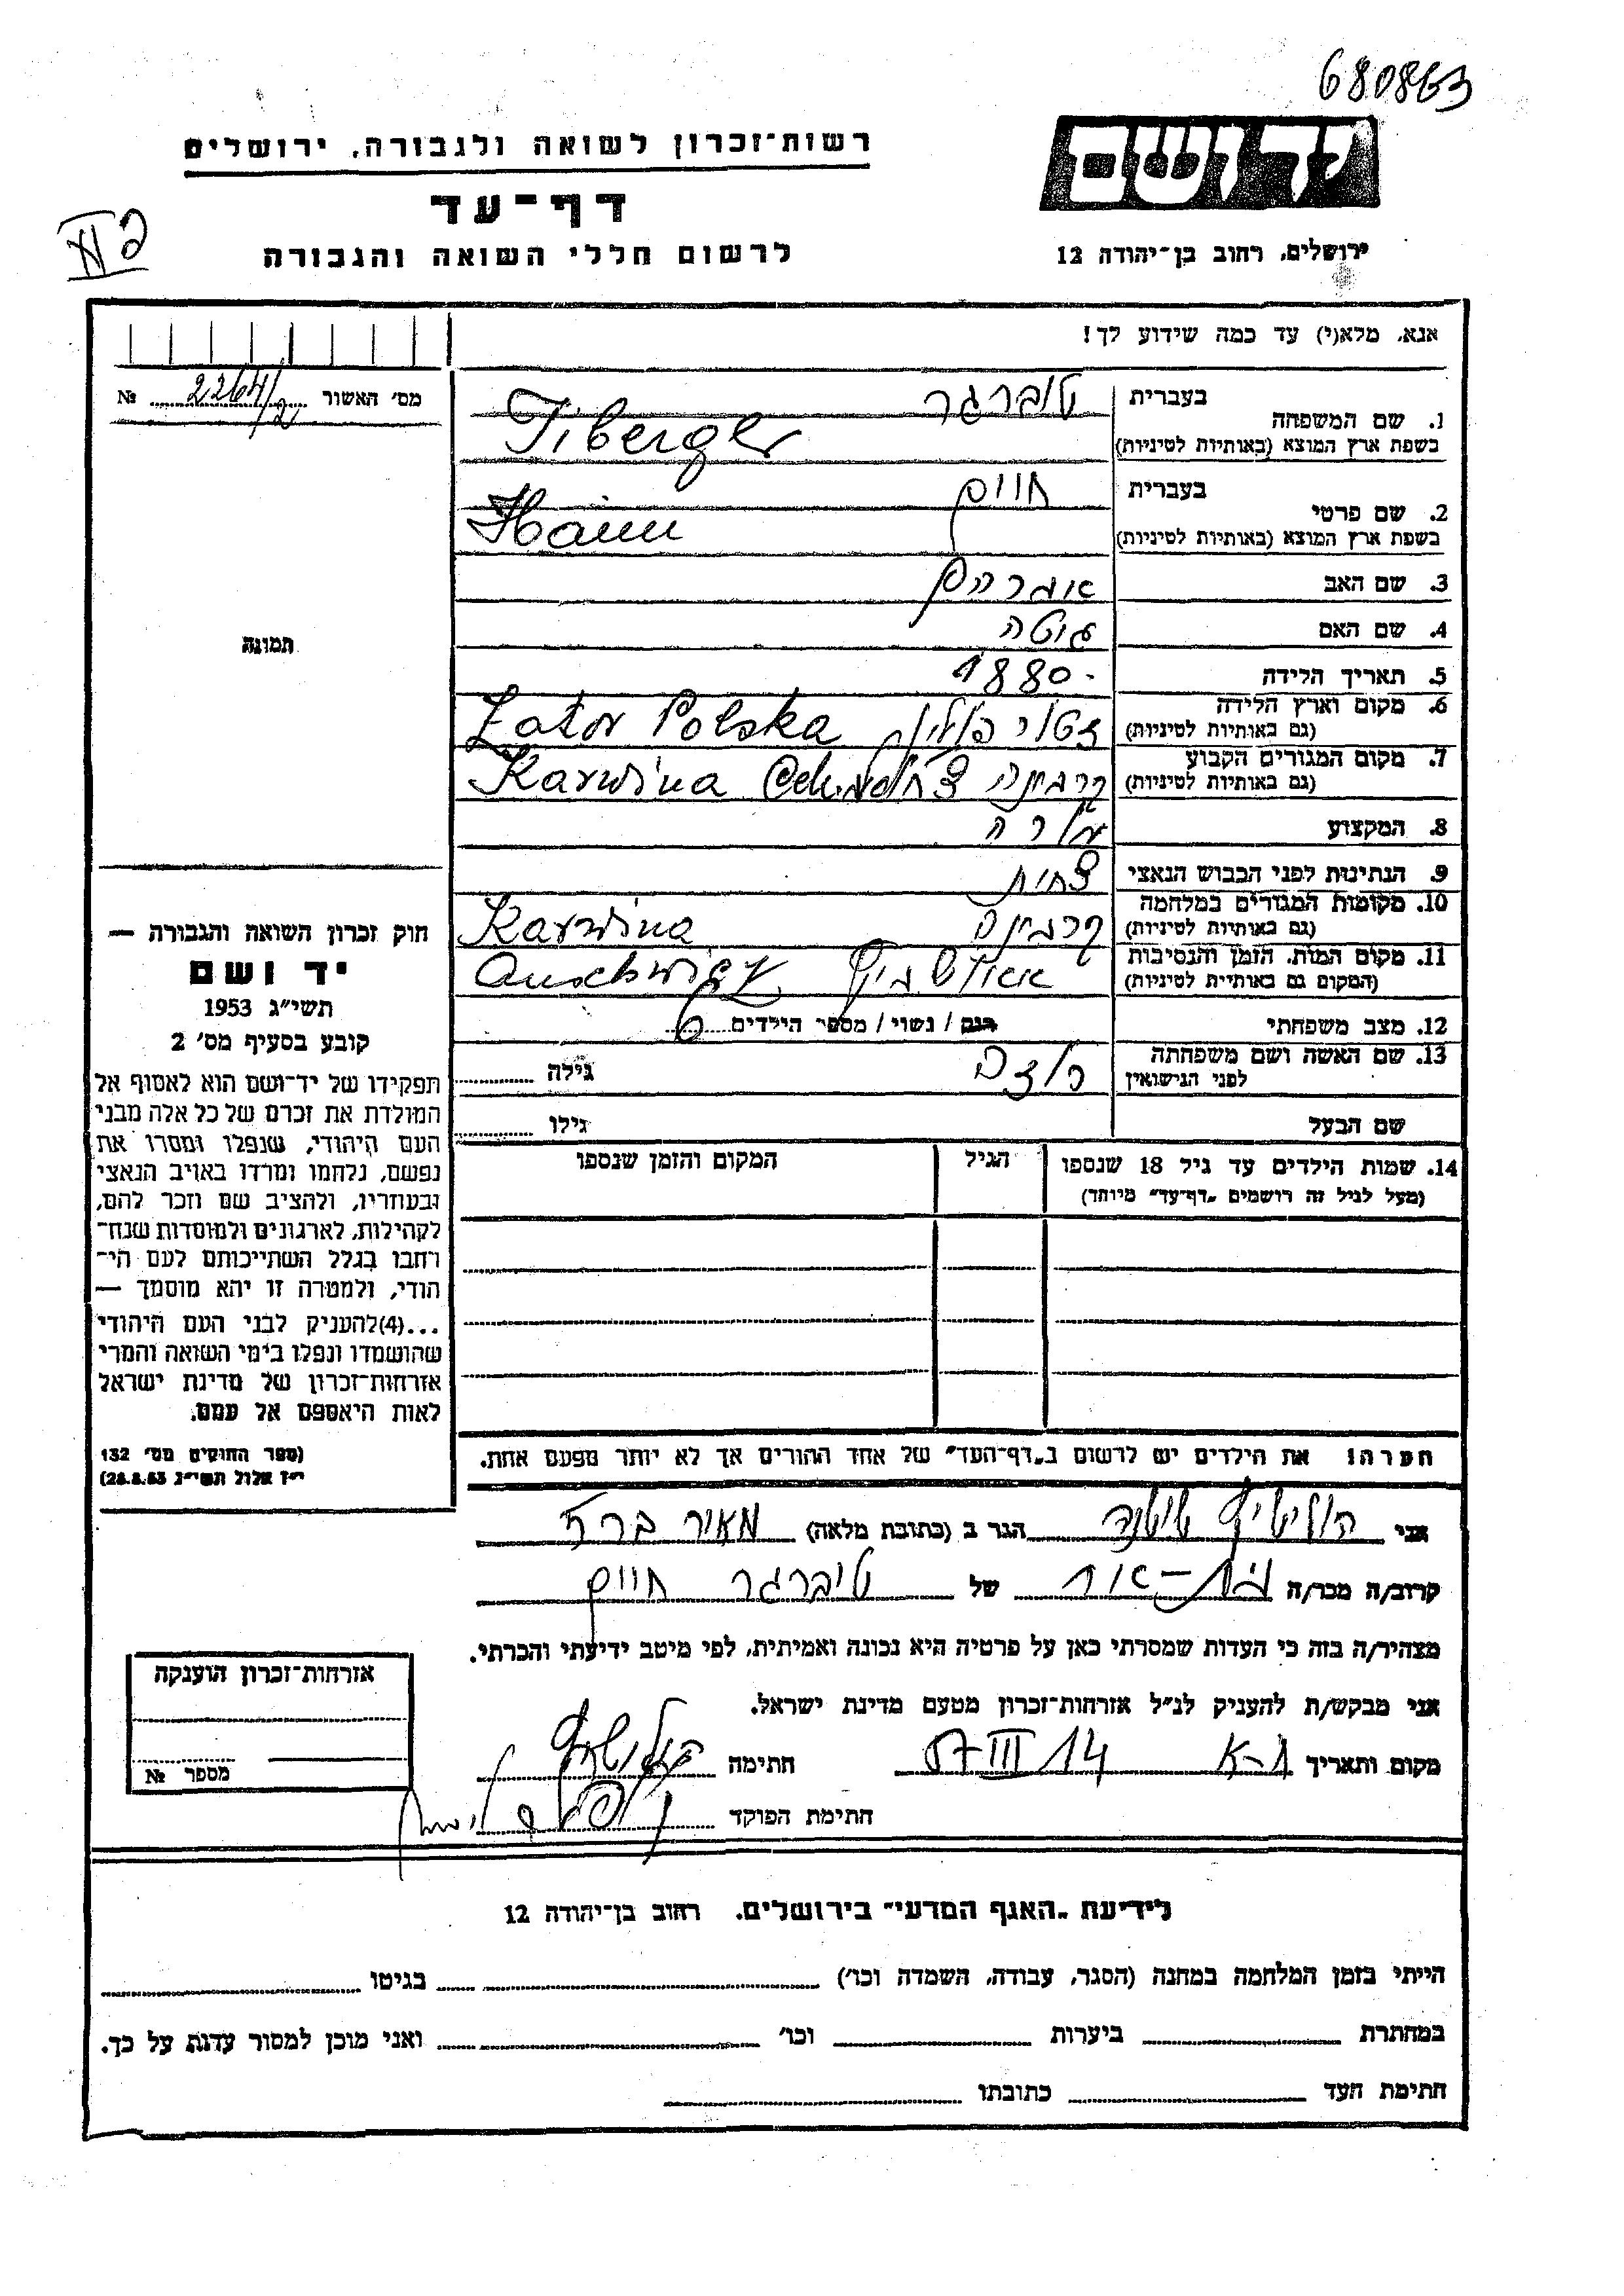 680863
יד ושם
רשות־זכרון לשואה ולגבורה, ירושלים
דף־עד
לרשום חללי השואה והגבורה
ירושלים, רחוב בן־יהודה 12
אנא, מלא(י) עד כמה שידוע לך!
מס׳ האשור 2264/2 №
1. שם המשפחה בעברית טוברגר
בשפת ארץ המוצא (באותיות לטיניות) Tiberger
2. שם פרטי בעברית חיים
בשפת ארץ המוצא (באותיות לטיניות) Haim
3. שם האב אברהם
4. שם האם גיטה
5. תאריך הלידה 1880
6. מקום וארץ הלידה זטור פולין Zator Polska
(גם באותיות לטיניות)
7. מקום המגורים הקבוע קרבינה Karwina
(גם באותיות לטיניות)
8. המקצוע מורה
9. הנתינות לפני הכבוש הנאצי צ׳כית
10. מקומות המגורים במלחמה קרבינה Karwina
(גם באותיות לטיניות)
11. מקום המות, הזמן והנסיבות אאושביץ
(המקום גם באותיית לטיניות)
12. מצב משפחתי רוק / נשוי / מספר הילדים 6
13. שם האשה ושם משפחתה רוזה גילה
לפני הנישואין
שם הבעל גילו
14. שמות הילדים עד גיל 18 שנספו הגיל המקום והזמן שנספו
(מעל לגיל זה רושמים „דף־עד״ מיוחד)
הערה! את הילדים יש לרשום ב„דף־העד״ של אחד ההורים אך לא יותר מפעם אחת.
תמונה
חוק זכרון השואה והגבורה —
יד ושם
תשי״ג 1953
קובע בסעיף מס׳ 2
תפקידו של יד־ושם הוא לאסוף אל
המולדת את זכרם של כל אלה מבני
העם היהודי, שנפלו ומסרו את
נפשם, נלחמו ומרדו באויב הנאצי
ובעוזריו, ולהציב שם וזכר להם,
לקהילות, לארגונים ולמוסדות שנח־
רחבו בגלל השתייכותם לעם הי־
הודי, ולמטרה זו יהא מוסמך —
...(4)להעניק לבני העם היהודי
שהושמדו ונפלו בימי השואה והמרי
אזרחות־זכרון של מדינת ישראל
לאות היאספם אל עמם.
(ספר החוקים מס׳ 132
י״ז אלול תשי״ג 28.8.53)
אני הולשטיין הגר ב (כתובת מלאה) מאיר ברץ
קרוב/ה מכר/ה בת-אח של טיברגר חיים
מצהיר/ה בזה כי העדות שמסרתי כאן על פרטיה היא נכונה ואמיתית, לפי מיטב ידיעתי והכרתי.
אני מבקש/ת להעניק לנ״ל אזרחות־זכרון מטעם מדינת ישראל.
מקום ותאריך 14 III 57 חתימה
חתימת הפוקד
אזרחות־זכרון הוענקה
מספר №
לידיעת „האגף המדעי״ בירושלים, רחוב בן־יהודה 12
הייתי בזמן המלחמה במחנה (הסגר, עבודה, השמדה וכו׳) בגיטו
במחתרת ביערות וכו׳ ואני מוכן למסור עדות על כך.
חתימת העד כתובתו